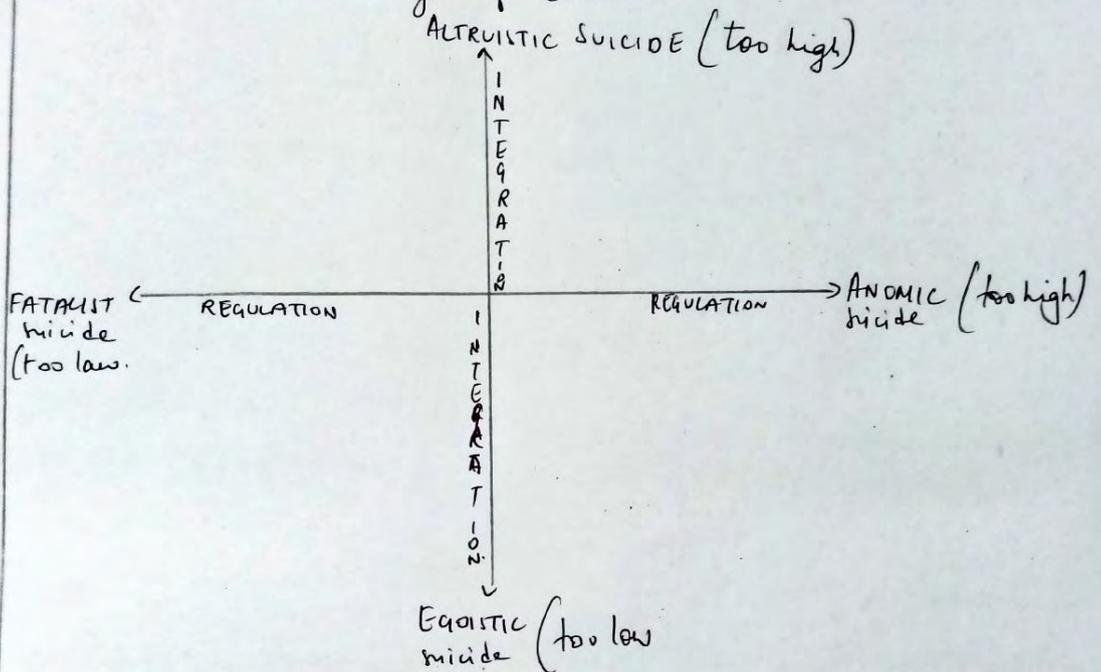 ALTRUISTIC SUICIDE (too high)
INTEGRATION
FATALIST suicide (too law.
REGULATION
REGULATION
ANOMIC suicide (too high)
INTEGRATION.
EGOISTIC suicide (too low